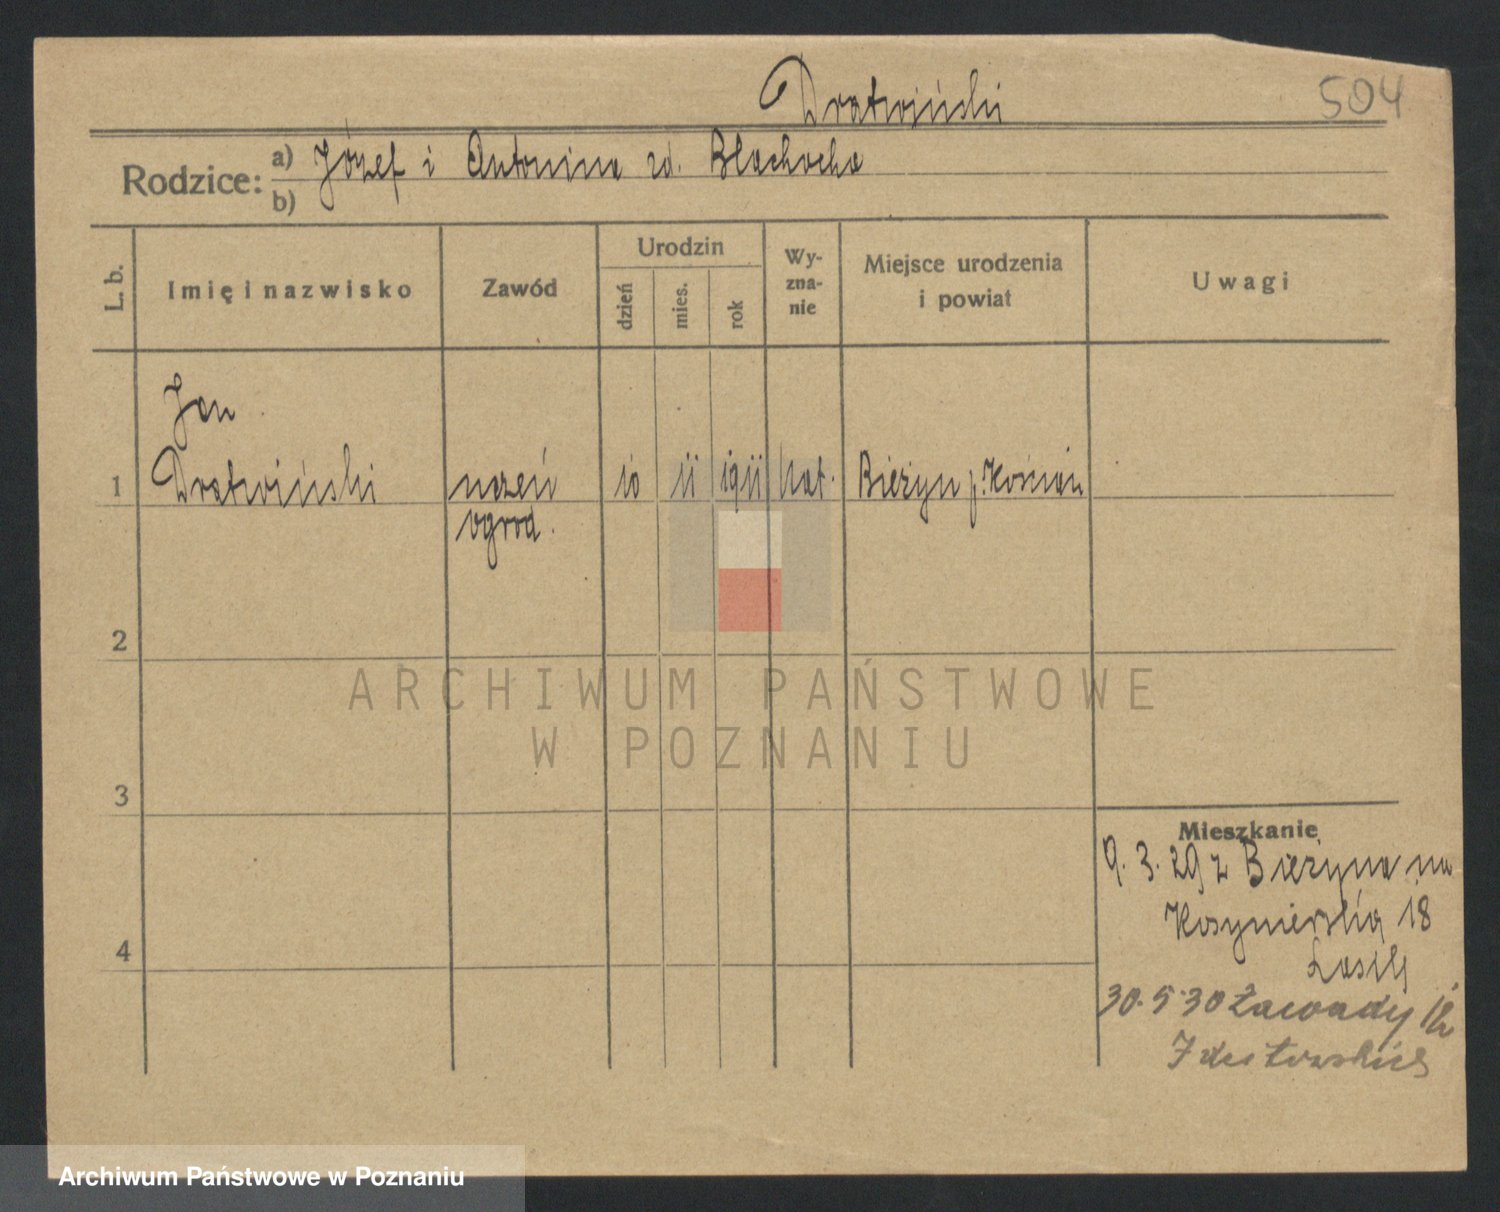 Dratwiński
504
Rodzice:
a) Józef i Antonina zd. Błachocha
b)
L. b.
Imię i nazwisko
Zawód
Urodzin
dzień
mies.
rok
Wy-
zna-
nie
Miejsce urodzenia
i powiat
Uwagi
Jan
1 Dratwiński uczeń 10 11 1911 kat. Bieżyn p. Kościan
ogrod.
2
3
4
ARCHIWUM PAŃSTWOWE
W POZNANIU
Mieszkanie
9. 3. 29 z Bieżyna na
18
30. 5. 30 Zawady
Archiwum Państwowe w Poznaniu